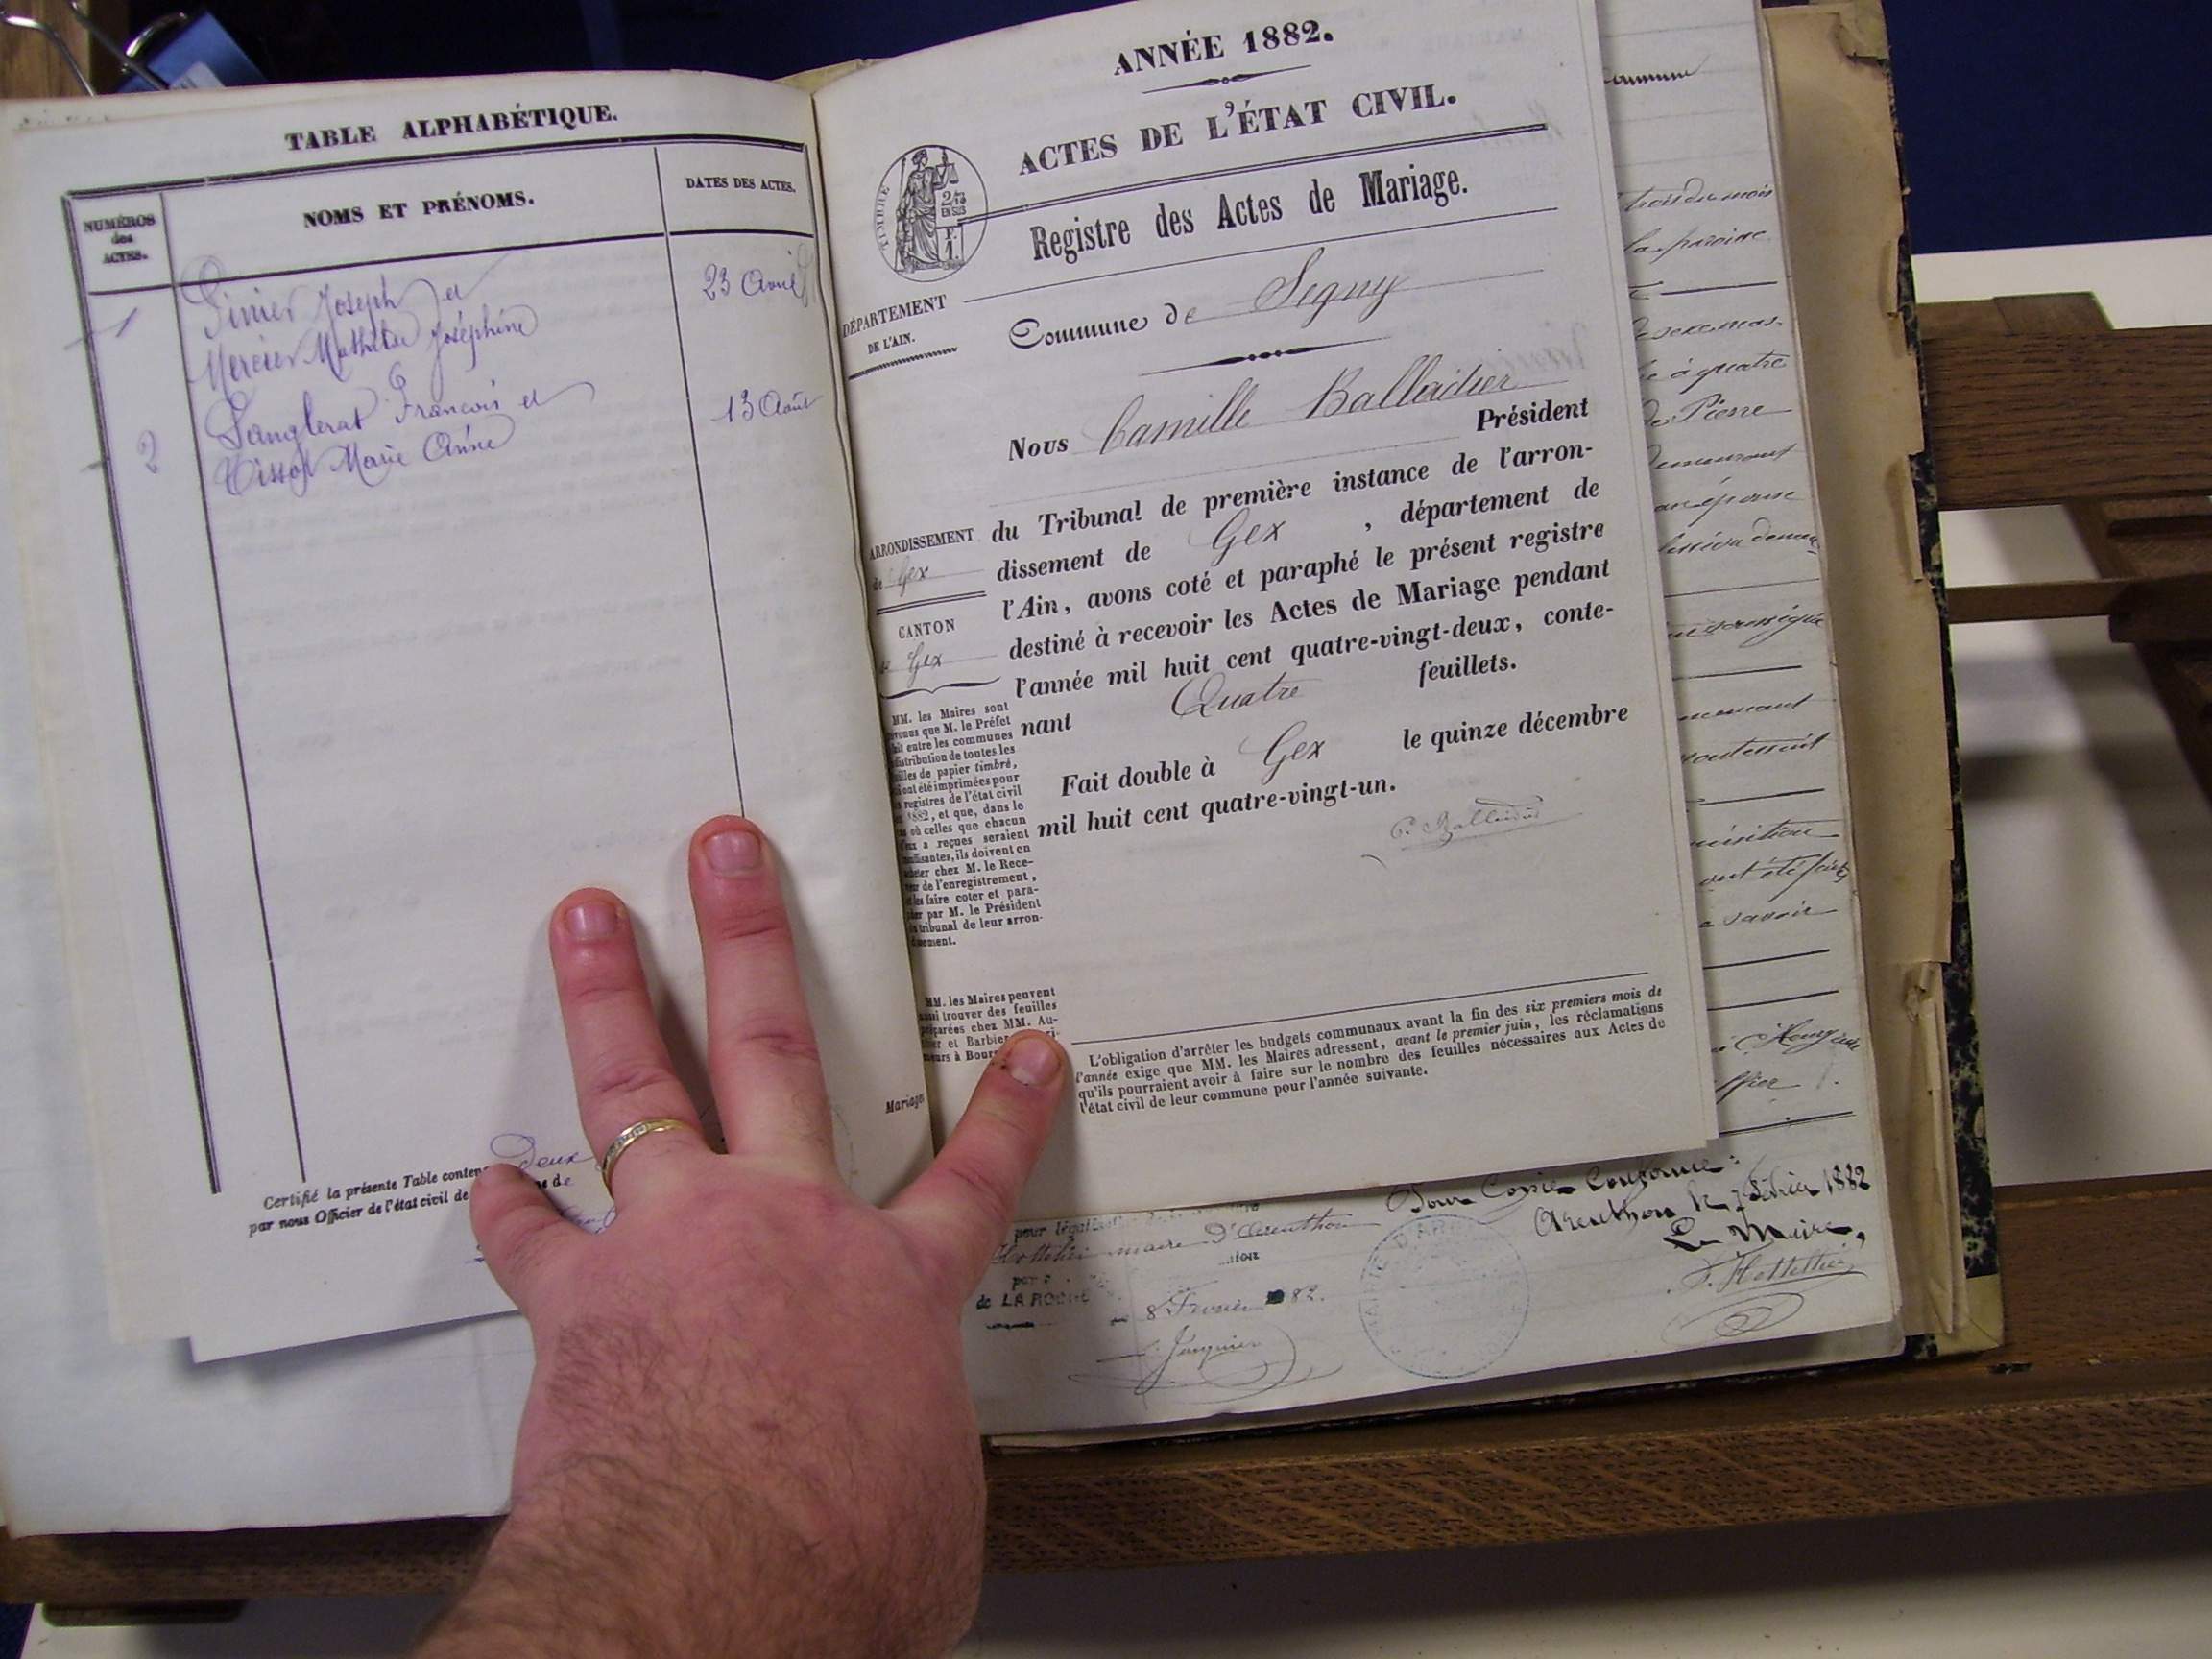 TABLE ALPHABÉTIQUE.
NUMÉROS
des
ACTES.
NOMS ET PRÉNOMS.
DATES DES ACTES.
1
Pinier Joseph et
23 Avril
Mercier Mathilde Joséphine
2
Sanglerat François et
13 Août
Tissot Marie Anne
Certifié la présente Table conten Deux
par nous Officier de l'état civil de
Mariages
ANNÉE 1882.
ACTES DE L'ÉTAT CIVIL.
Registre des Actes de Mariage.
TIMBRE
2/10
EN SUS
F.
1.
DÉPARTEMENT
DE L'AIN.
Commune de Segny
Nous Camille Balleidier Président
du Tribunal de première instance de l'arron-
dissement de Gex , département de
l'Ain, avons coté et paraphé le présent registre
destiné à recevoir les Actes de Mariage pendant
l'année mil huit cent quatre-vingt-deux, conte-
nant Quatre feuillets.
Fait double à Gex le quinze décembre
mil huit cent quatre-vingt-un.
C. Balleidier
ARRONDISSEMENT
de Gex
CANTON
de Gex
MM. les Maires sont
que M. le Préfet
fait entre les communes
distribution de toutes les
feuilles de papier timbré,
qui ont été imprimées pour
registres de l'état civil
1882, et que, dans le
cas où celles que chacun
d'eux a reçues seraient
insuffisantes, ils doivent en
acheter chez M. le Rece-
veur de l'enregistrement,
et les faire coter et para-
pher par M. le Président
du tribunal de leur arron-
dissement.
MM. les Maires peuvent
aussi trouver des feuilles
préparées chez MM. Au-
et Barbier
à Bourg
L'obligation d'arrêter les budgets communaux avant la fin des six premiers mois de
l'année exige que MM. les Maires adressent, avant le premier juin, les réclamations
qu'ils pourraient avoir à faire sur le nombre des feuilles nécessaires aux Actes de
l'état civil de leur commune pour l'année suivante.
trois du mois
la paroisse
de sexe mas-
à quatre
de Pierre
demeurant
son épouse
ont été faites
savoir
Pour Copie Conforme:
Arenthon le 7 Février 1882
Le Maire,
pour légalisation
maire d'Arenthon
par
de LA ROCHE
8 Février 1882.